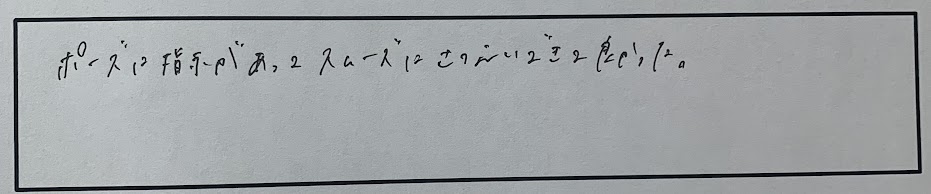 ポーズに指示があってスムーズにさつえいできて良かった。